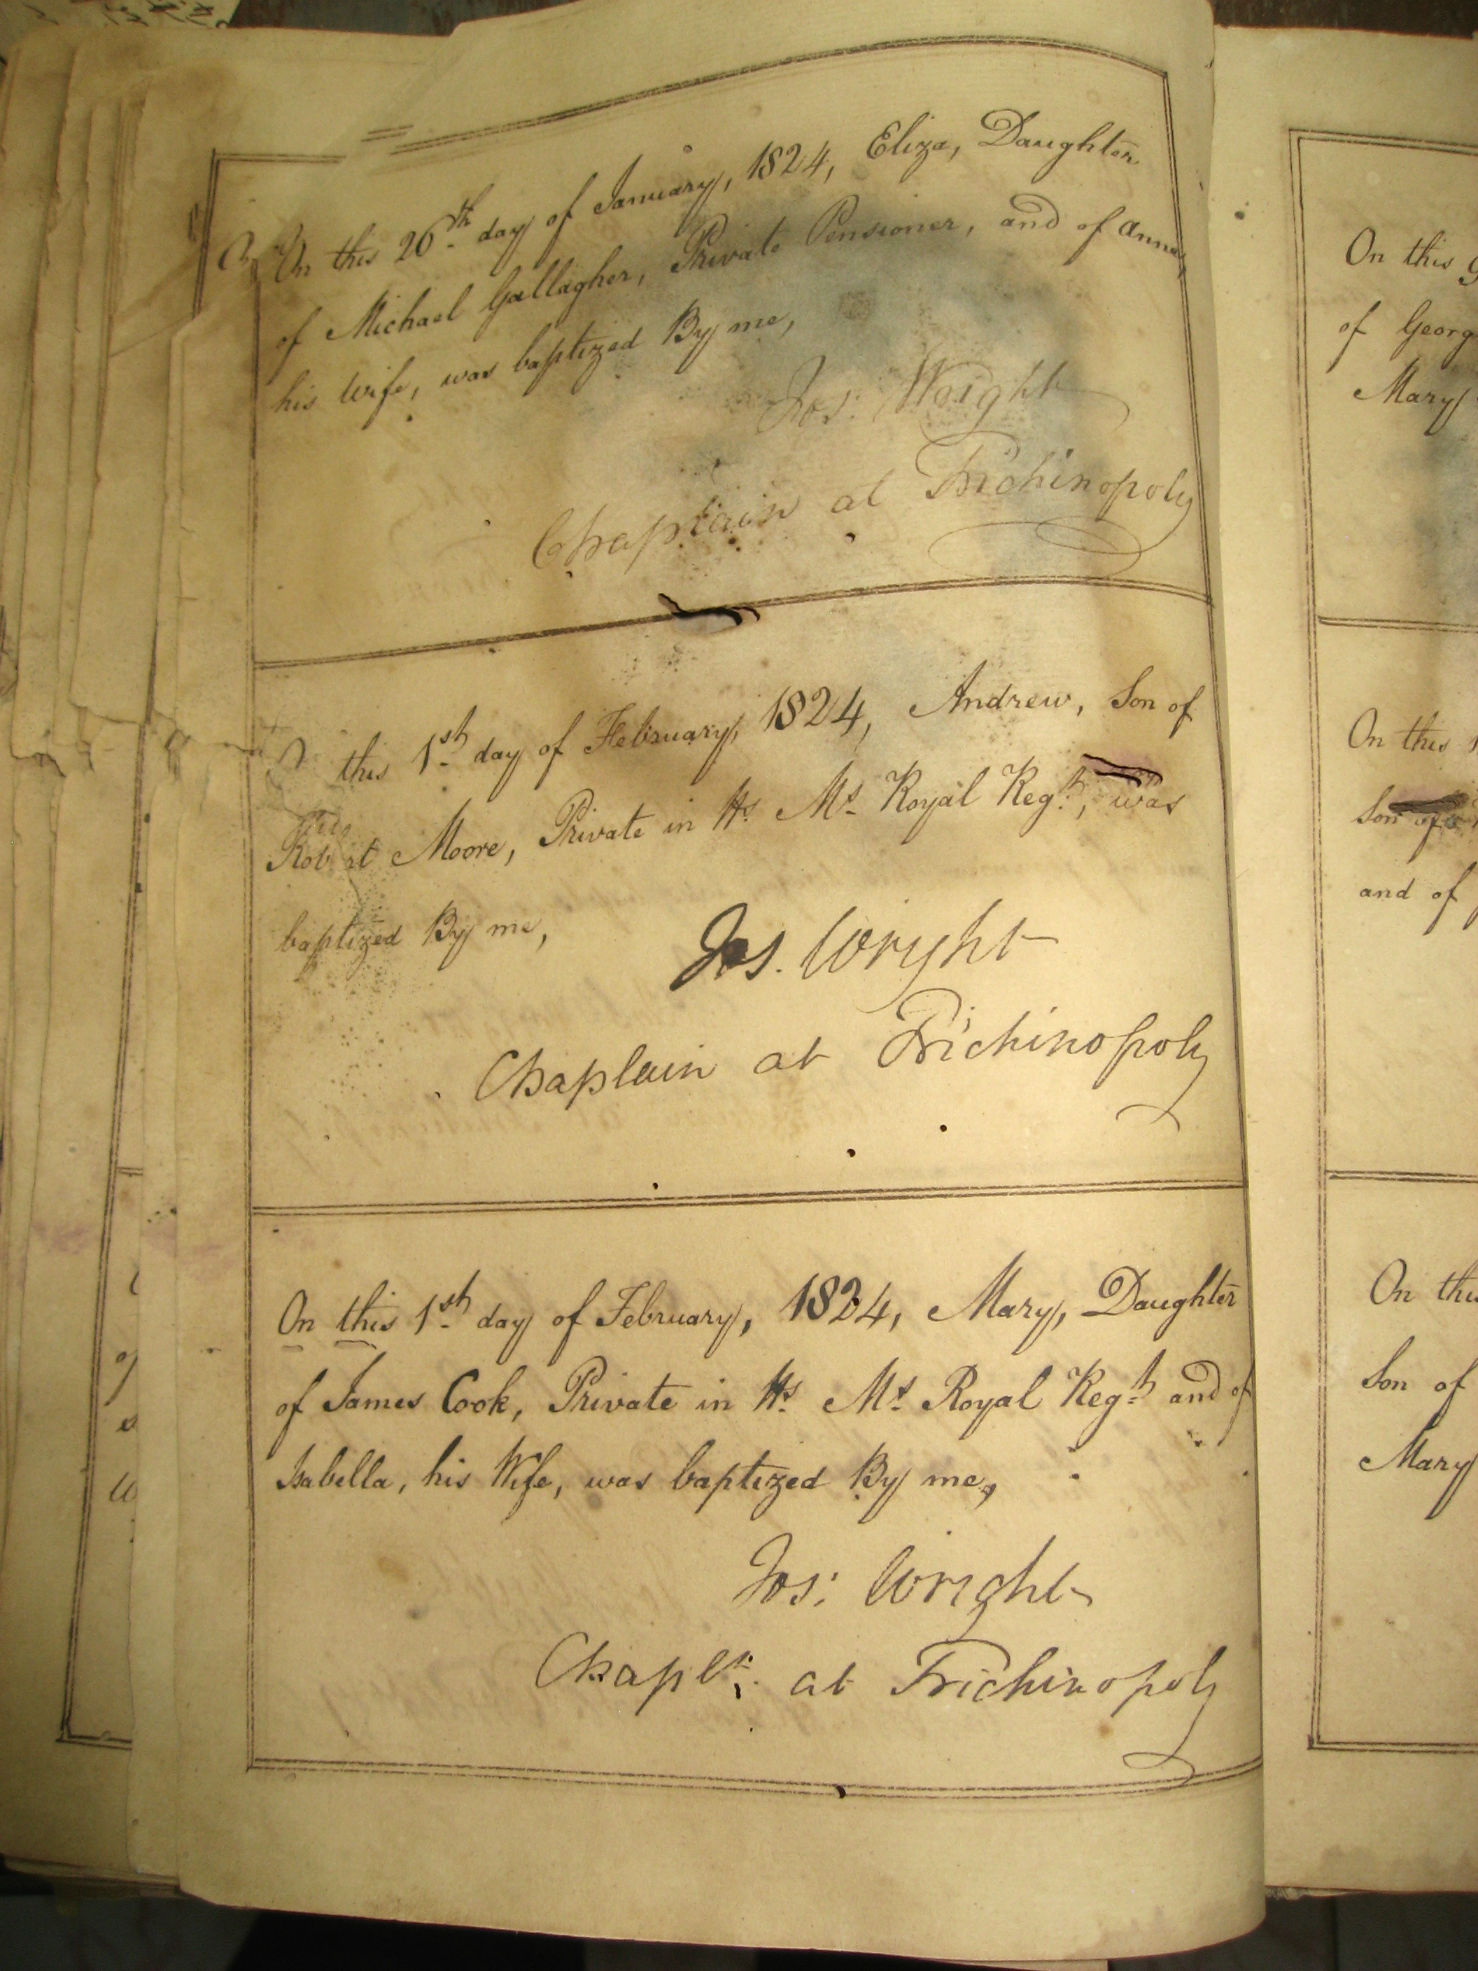 On this 26th day of January, 1824, Eliza, Daughter
of Michael Gallagher, Private Pensioner, and of Anne,
his Wife, was baptized By me,
Jos: Wright
Chaplain at Trichinopoly
this 1st day of February, 1824, Andrew, Son of
Robert Moore, Private in Hs. Ms. Royal Regt, was
baptized By me,
Jos. Wright
Chaplain at Trichinopoly
On this 1st day of February, 1824, Mary, Daughter
of James Cook, Private in Hs. Ms. Royal Regt and of
Isabella, his Wife, was baptized By me,
Jos: Wright
Chapln. at Trichinopoly
On this
of Georg
Mary
On this
Son of
and of
On this
Son of
Mary